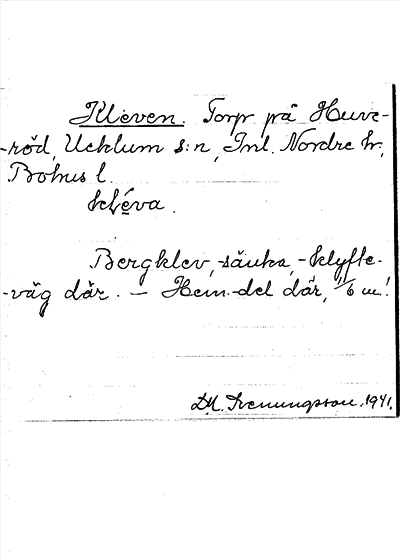 Kleven. Torp på Huve-
-röd, Ucklum s:n, Inl. Nordre hr,
Bohus l.
kléva.
Bergklev, -sänka, -klyfte-
-väg där. — Hem.-del där, 1/6 m!
D.H. 1941.